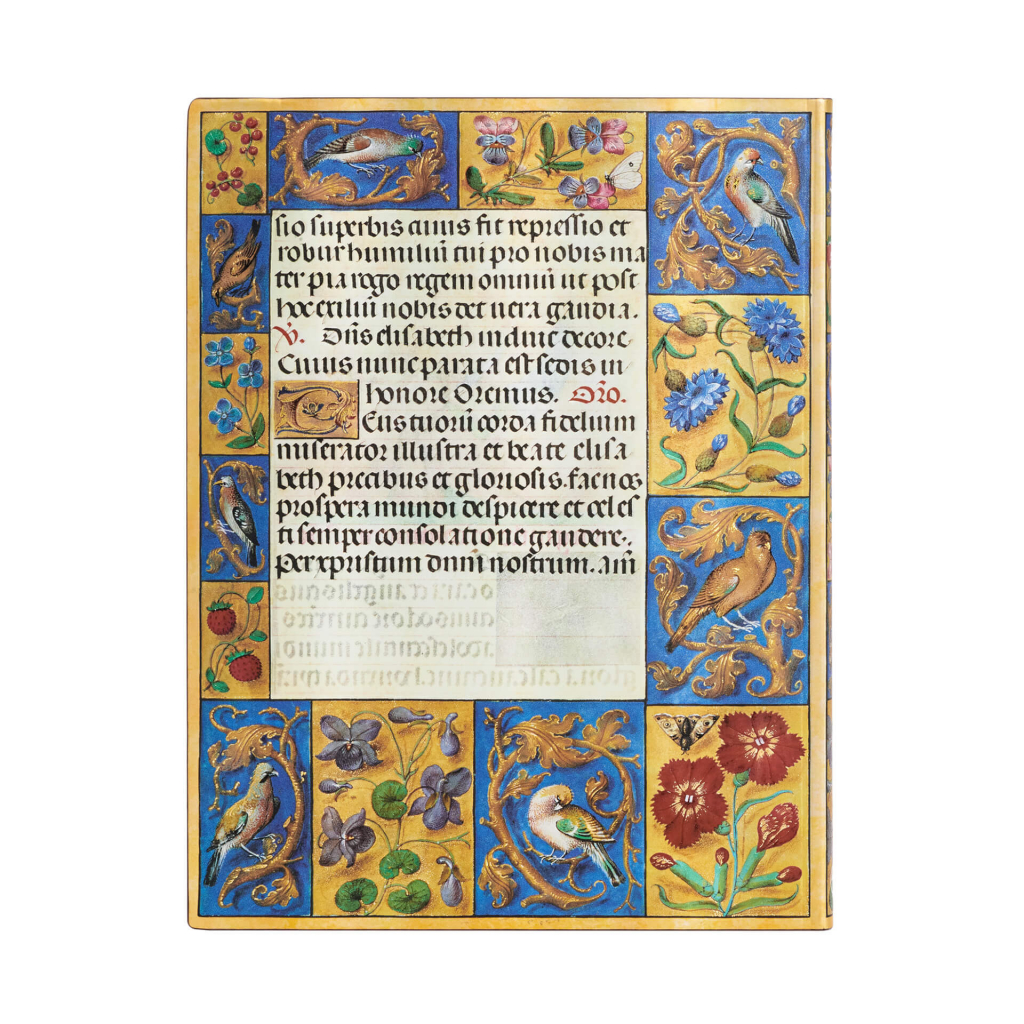 sio superbis cuius fit repressio et
robur humiliũ tui pro nobis ma
ter pia rogo regem omniũ ut post
hoc exiliũ nobis det uera gaudia.
V. Dñs elisabeth induit decore
Cuius nunc parata est sedis in
honore Oremus. Orõ.
Deus tuorũ corda fidelium
miserator illustra et beate elisa
beth precibus et gloriosis. fac nos
prospera mundi despicere et celes
ti semper consolatione gaudere.
Per xpristum dnm nostrum. am̃